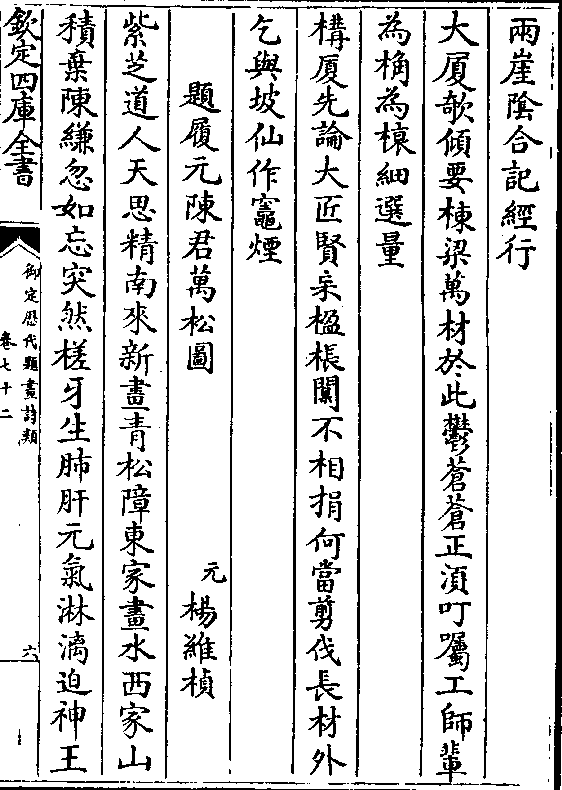 兩崖陰合記經行
大厦欹傾要棟梁萬材於此鬱蒼蒼正湏叮囑工師輩
為桷為榱細選量
構厦先論大匠賢杗楹棖闑不相捐何當剪伐長材外
乞與坡仙作竈煙
題履元陳君萬松圖
元 楊維楨
紫芝道人天思精南來新畫青松障東家畫水西家山
積棄陳縑忽如忘突然槎牙生肺肝元氣淋漓迫神王
欽定四庫全書
御定歷代題畫詩類
卷七十二
六